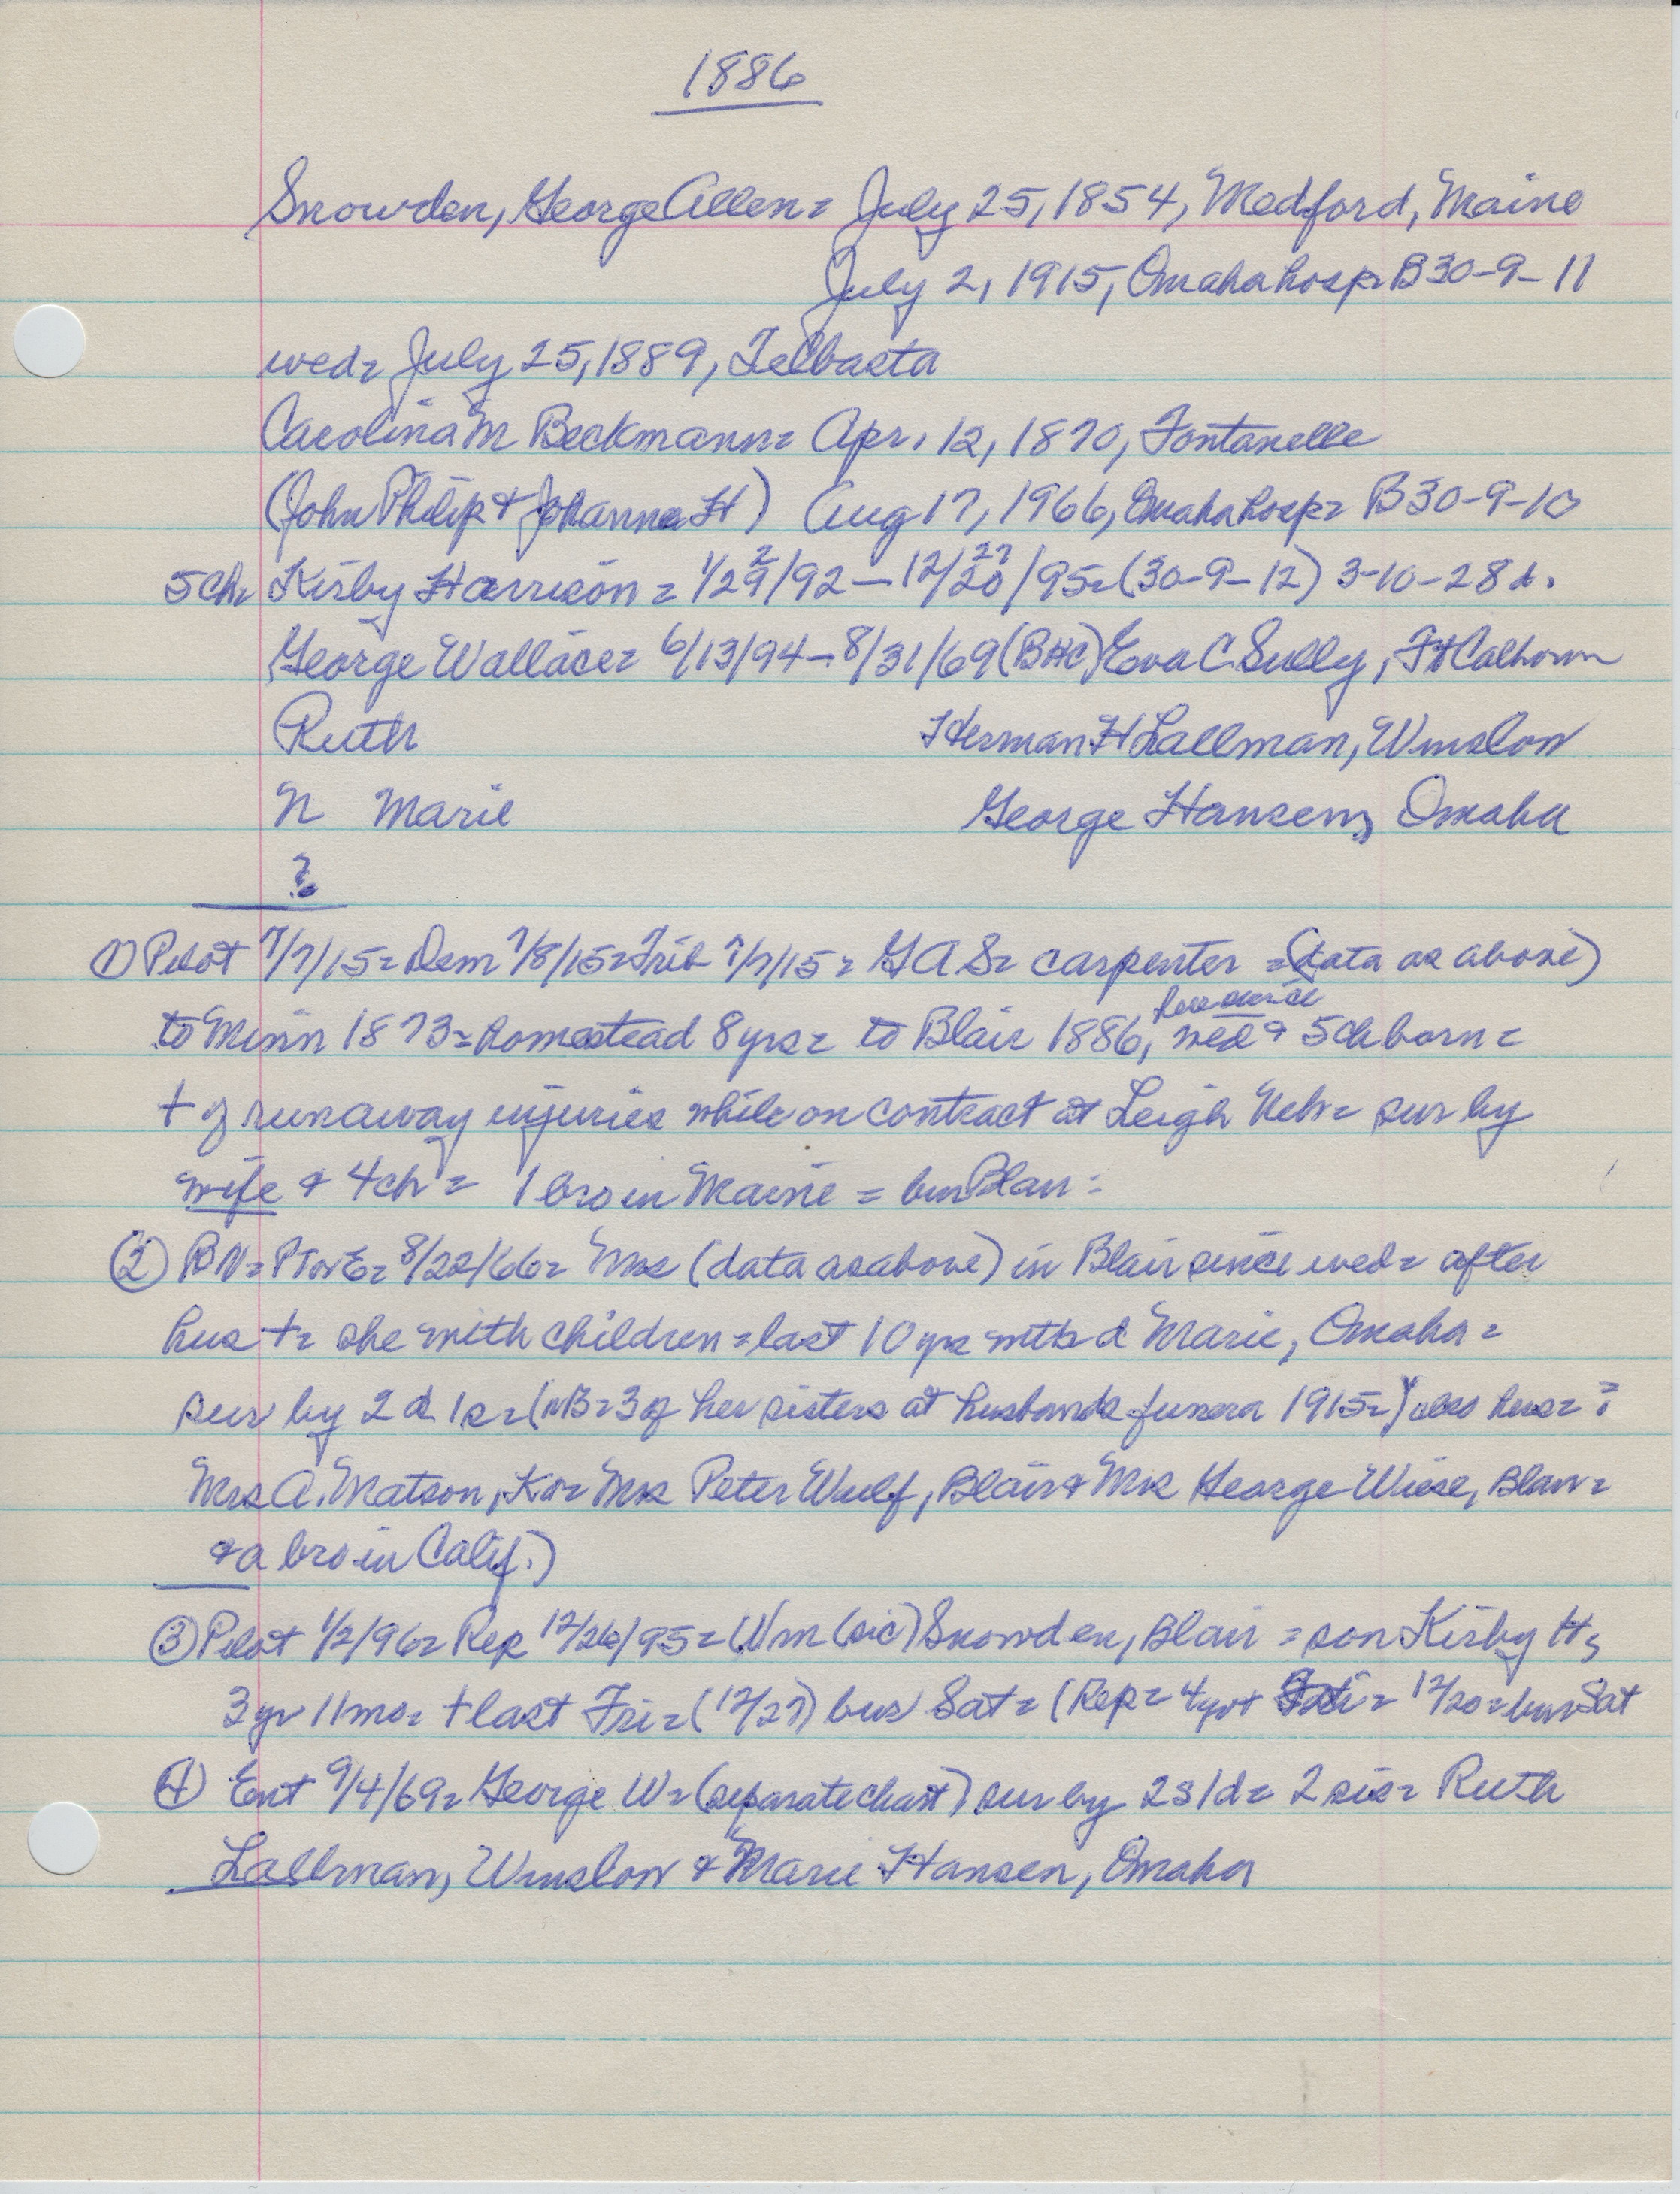 1886
Snowden, George Allen = July 25, 1854, Medford, Maine
July 2, 1915, Omaha hosp = B30-9-11
wed = July 25, 1889, Telbasta
Carolina M Beckmann = Apr. 12, 1870, Fontanelle
(John Philip & Johanna H) Aug 17, 1966, Omaha hosp = B30-9-10
5 ch = Kirby Harrison = 1/29/92 — 12/20/95 = (30-9-12) 3-10-28 d.
2 27
George Wallace = 6/13/94 - 8/31/69 (BHC) Eva C. Sully, Ft Calhoun
Ruth Herman H Lallman, Winslow
N Marie George Hansen, Omaha
?
① Pilot 7/7/15 = Dem 7/8/15 = Trib 7/7/15 = G A S = carpenter = (data as above)
here since
to Minn 1873 = homestead 8 yrs = to Blair 1886, wed & 5 ch born =
+ of runaway injuries while on contract at Leigh Neb = sur by
wife & 4 ch = 1 bro in Maine = bur Blair =
② BN = PTorE = 8/22/66 = Mrs (data as above) in Blair since wed = after
hus + = she with children = last 10 yrs with d Marie, Omaha =
sur by 2 d 1 s = (NB = 3 of her sisters at husbands funera 1915 =) also hers = ?
Mrs A. Matson, Ko = Mrs Peter Wulf, Blair & Mrs George Wiese, Blair =
& a bro in Calif.)
③ Pilot 1/2/96 = Rep 12/26/95 = Wm (sic) Snowden, Blair = son Kirby H,
3 yr 11 mo = + last Fri = (12/27) bur Sat = (Rep = 4 yr + = 12/20 = bur Sat
④ Ent 9/4/69 = George W = (separate chart) sur by 2 s 1 d = 2 sis = Ruth
Lallman, Winslow & Marie Hansen, Omaha